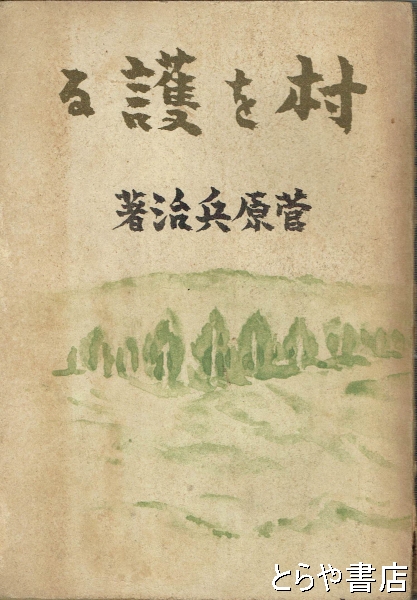 村を護る
菅原兵治著
とらや書店